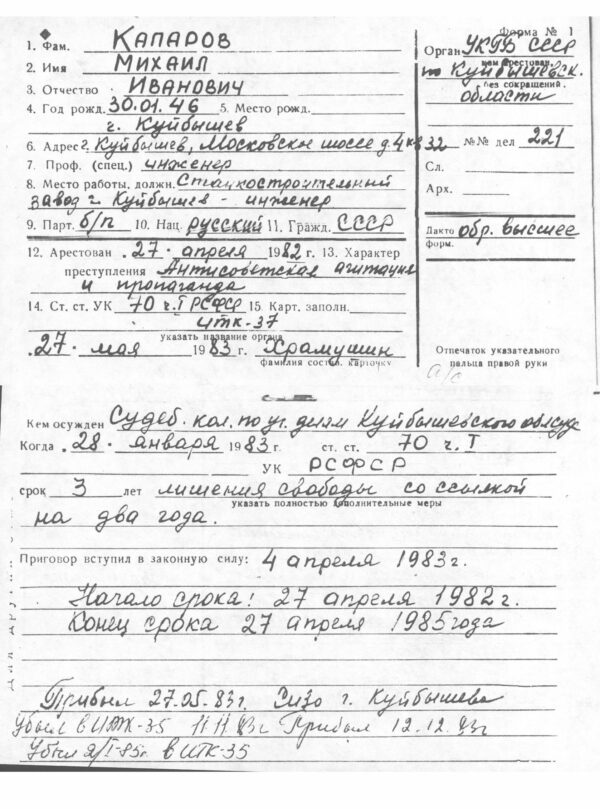 Форма № 1
1. Фам. КАПАРОВ
2. Имя МИХАИЛ
3. Отчество ИВАНОВИЧ
4. Год рожд. 30.01.46 5. Место рожд.
г. Куйбышев
6. Адрес г. Куйбышев, Московское шоссе д.4 кв 32
7. Проф. (спец.) инженер
8. Место работы, должн. Станкостроительный
завод г. Куйбышев - инженер
9. Парт. б/п 10. Нац. русский 11. Гражд. СССР
12. Арестован 27 апреля 1982 г. 13. Характер
преступления Антисоветская агитация
и пропаганда
14. Ст. ст. УК 70 ч.I РСФСР 15. Карт. заполн.
ИТК-37
указать название органа
27 мая 1983 г. Храмушин
фамилия состав. карточку
Орган УКГБ СССР
кем арестован,
по Куйбышевск.
без сокращений.
области
№№ дел 221
Сл.
Арх.
Дакто обр. высшее
форм.
Отпечаток указательного
пальца правой руки
а/с
Кем осужден Судеб. кол. по уг. делам Куйбышевского облсуда
Когда 28 января 1983 г. ст. ст. 70 ч. I
УК РСФСР
срок 3 лет лишения свободы со ссылкой
указать полностью дополнительные меры
на два года.
Приговор вступил в законную силу: 4 апреля 1983 г.
Начало срока: 27 апреля 1982 г.
Конец срока 27 апреля 1985 года
Прибыл 27.05.83г. Сизо г. Куйбышева
Убыл в ИТК-35 11.11.83г Прибыл 12.12.83г
Убыл 2/I-85г. в ИТК-35